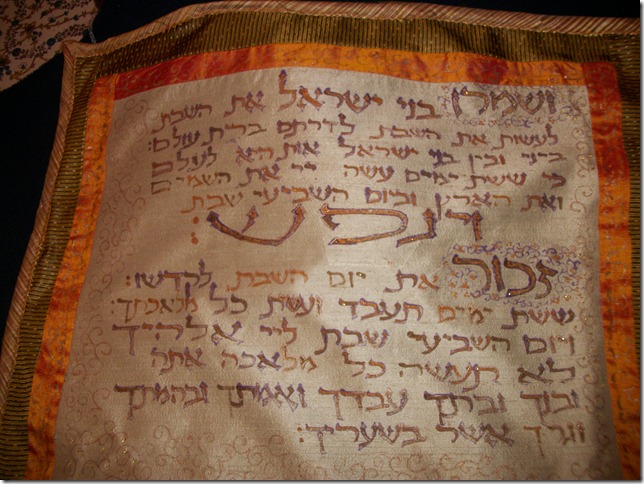 ושמרו בני ישראל את השבת
לעשות את השבת לדרתם ברית עולם:
ביני ובין בני ישראל אות היא לעלם
כי ששת ימים עשה יי את השמים
ואת הארץ וביום השביעי שבת
וינפש:
זכור את יום השבת לקדשו:
ששת ימים תעבד ועשת כל מלאכתך:
ויום השביעי שבת ליי אלהיך
לא תעשה כל מלאכה אתה
ובנך ובתך עבדך ואמתך ובהמתך
וגרך אשר בשעריך: